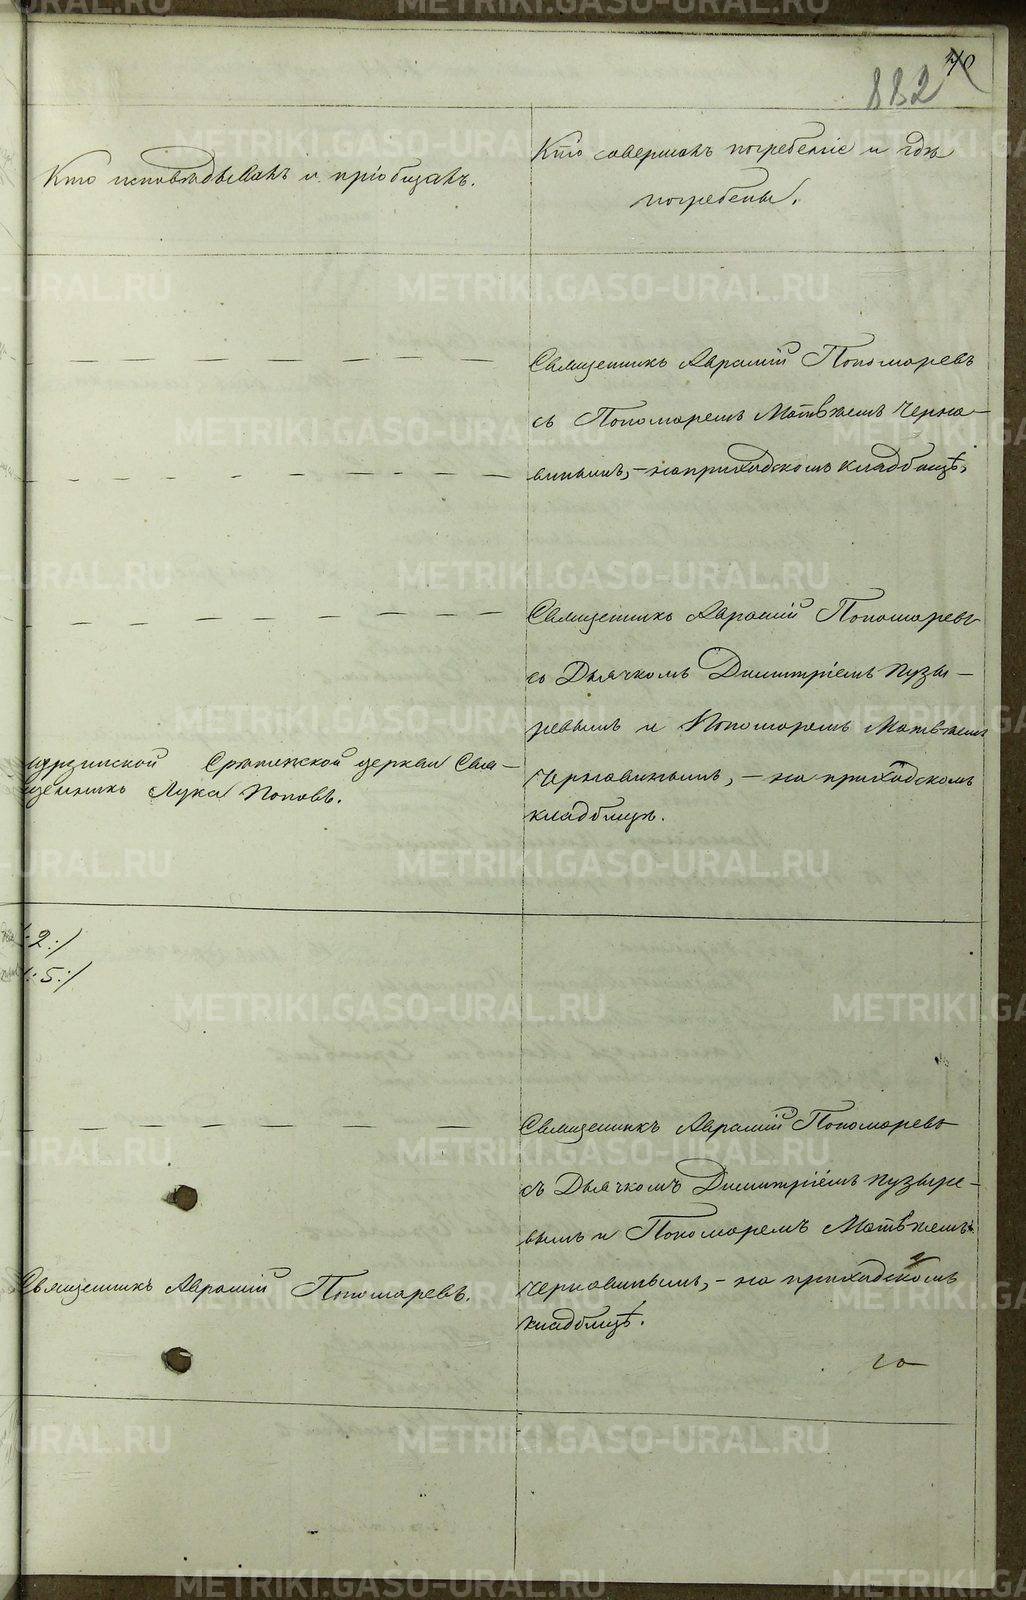 882
Кто исповѣдывалъ и пріобщалъ.
Кто совершалъ погребеніе и гдѣ
погребены.
Священникъ Аврамій Пономаревъ
съ Пономаремъ Матвѣемъ Черна-
винымъ, - на приходскомъ кладбищѣ.
Священникъ Аврамій Пономаревъ
съ Дьячкомъ Димитріемъ Пузы-
ревымъ и Пономаремъ Матвѣемъ
Чернавинымъ, - на приходскомъ
кладбищѣ.
Срѣтенской церкви Свя-
щенникъ Лука Поповъ.
2:/
:5:/
Священникъ Аврамій Пономаревъ
съ Дьячкомъ Димитріемъ Пузыре-
вымъ и Пономаремъ Матвѣемъ
Чернавинымъ, - на приходскомъ
кладбищѣ.
Священникъ Аврамій Пономаревъ.
METRIKI.GASO-URAL.RU